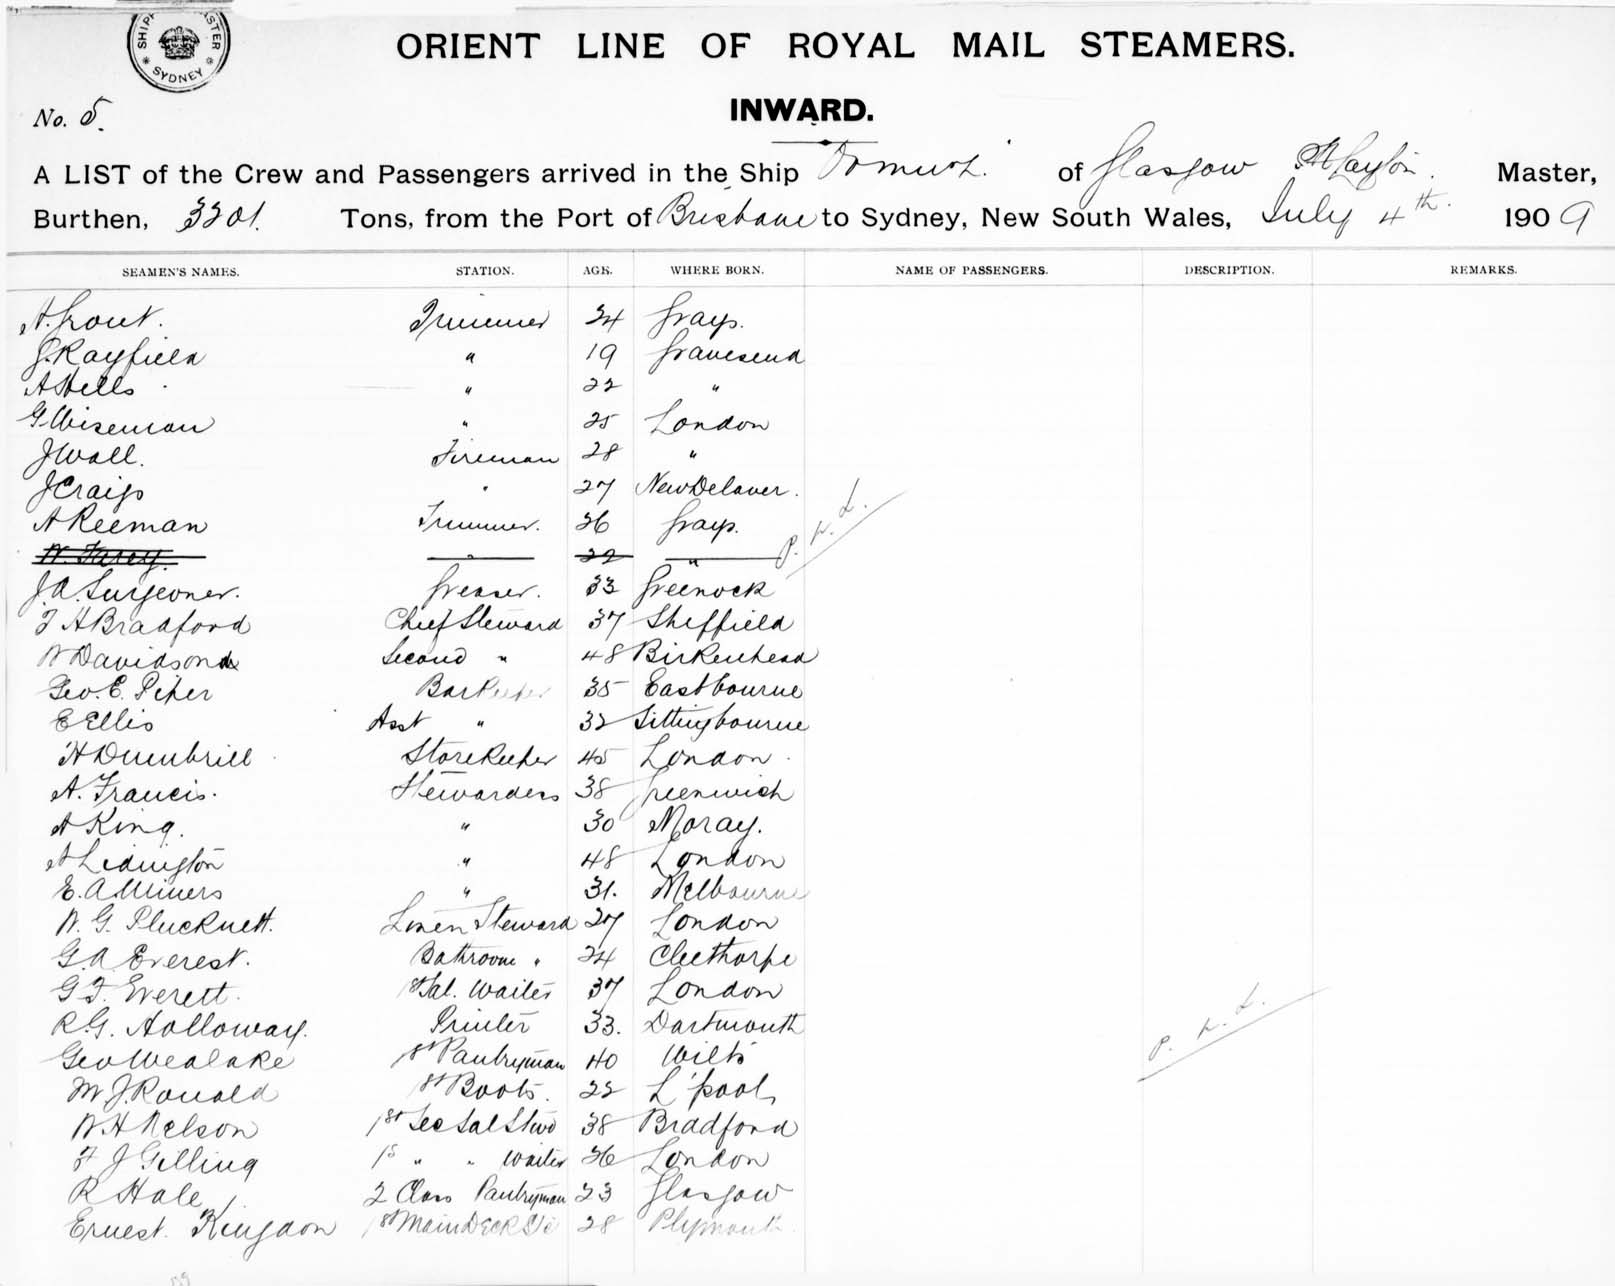 SHIPPING MASTER SYDNEY
ORIENT LINE OF ROYAL MAIL STEAMERS.
INWARD.
No. 5.
A LIST of the Crew and Passengers arrived in the Ship Ormuz. of Glasgow Master,
Burthen, 3201. Tons, from the Port of Brisbane to Sydney, New South Wales, July 4th. 1909
SEAMEN'S NAMES. STATION. AGE. WHERE BORN. NAME OF PASSENGERS. DESCRIPTION. REMARKS.
A. Grout. Trimmer 24 Grays.
J. Rayfield " 19 Gravesend
A Hells " 22 "
G Wiseman " 25 London
J Wall. Fireman 28 "
J Craig " 27 New Delaver.
A Reeman Trimmer. 26 Grays.
W. " 22 "
J.A. Surgeoner. Greaser. 33 Greenock
F H Bradford Chief Steward 37 Sheffield
W Davidson Second " 48 Birkenhead
Geo. E. Piper Barkeeper 35 Eastbourne
E Ellis Asst " 32 Sittingbourne
H Dumbrill Storekeeper 45 London
A. Francis. Stewardess 38 Greenwich
A King. " 30 Moray.
A Lidington " 48 London
E. A. Miners " 31. Melbourne
W. G. Plucknett. Linen Steward 27 London
G. A Everest. Bathroom " 24 Cleethorpe
G. F. Everett. 1st Sal. Waiter 37 London
R. G. Holloway. Printer 33. Dartmouth
Geo Wealake 1st Pantryman 40 Wilts
M. J. Ronald 1st Boots. 22 L'pool,
W. H Nelson 1st Sec Sal Stwd 38 Bradford
F J Gilling 1s " " waiter 26 London
R Hale 2 Class Pantryman 23 Glasgow
Ernest Kingdon 1st Main Deck 28 Plymouth